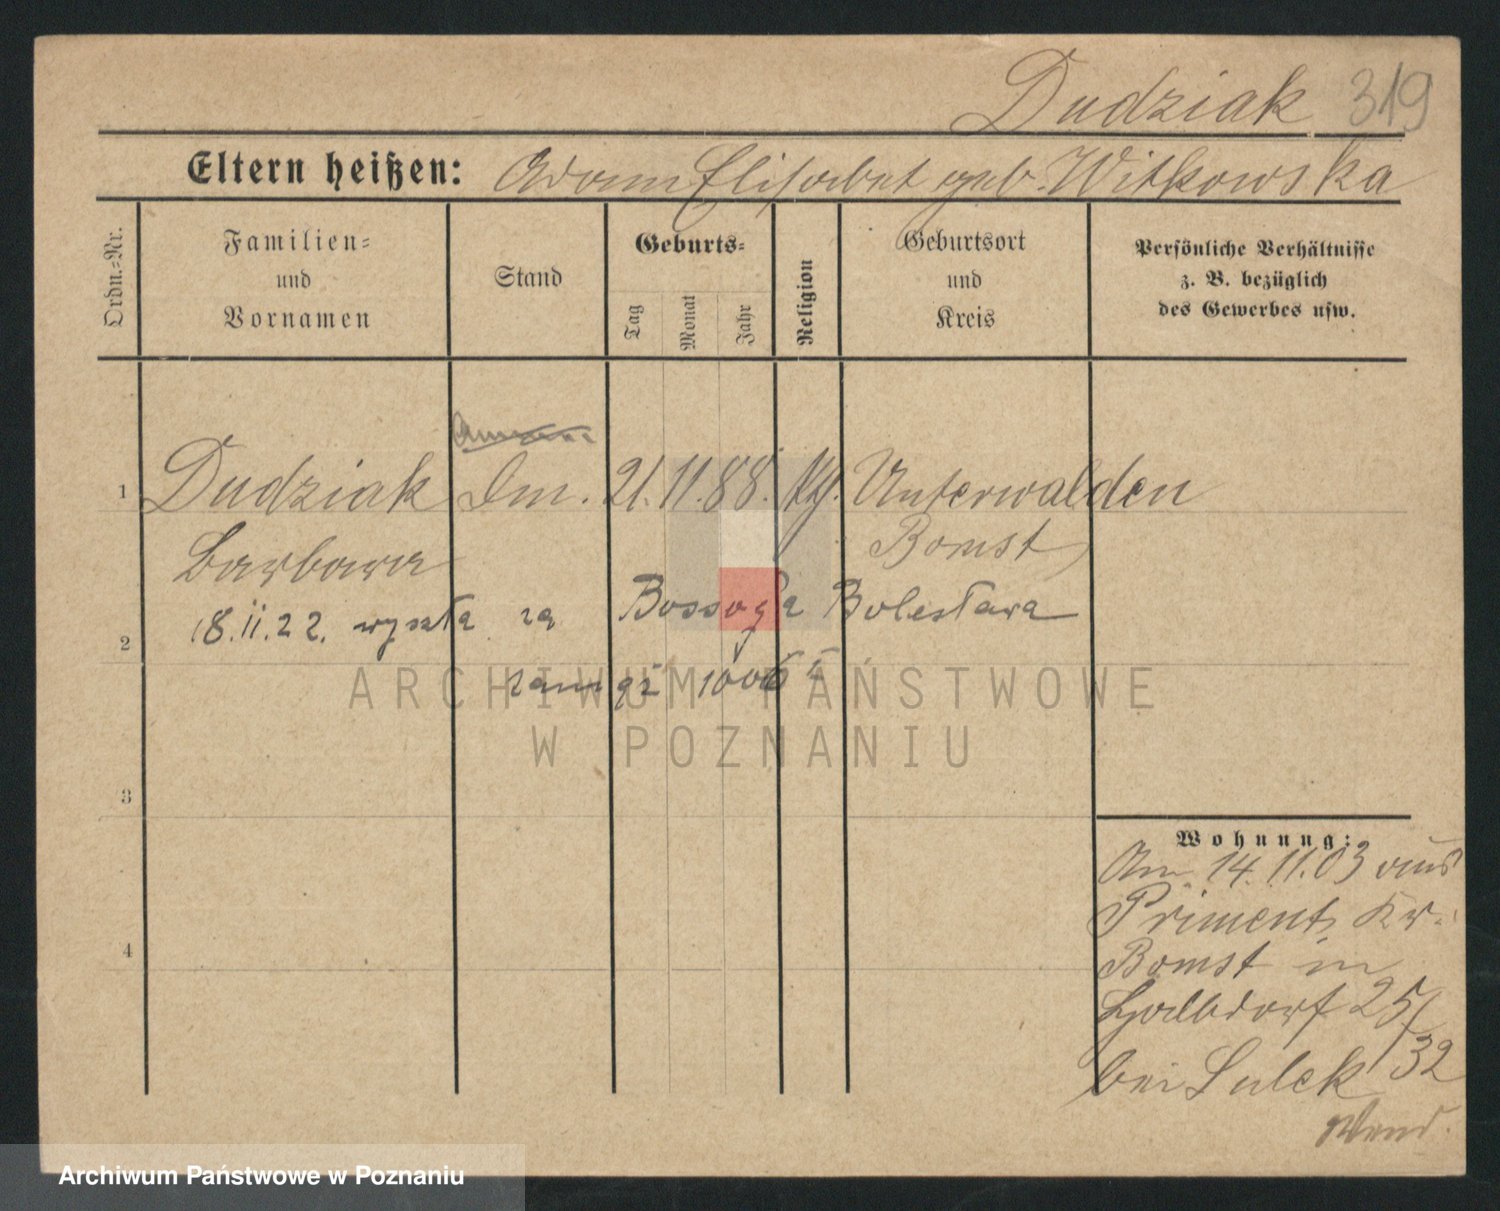 Dudziak 319
Eltern heißen: Adam Elisabet geb. Witkowska
Ordn.-Nr.
Familien-
und
Vornamen
Stand
Geburts-
Tag
Monat
Jahr
Religion
Geburtsort
und
Kreis
Persönliche Verhältnisse
z. B. bezüglich
des Gewerbes usw.
1 Dudziak 21. 11. 88. Unterwalden
Barbara Bomst
18.11.22. wyszła za Bossoga Bolesława
2
ARCHIWUM PAŃSTWOWE
W POZNANIU
3
4
Wohnung:
Am 14.11.03 aus
Priment Kr.
Bomst in
Halbdorf 25/
bei Lulek 32
Archiwum Państwowe w Poznaniu